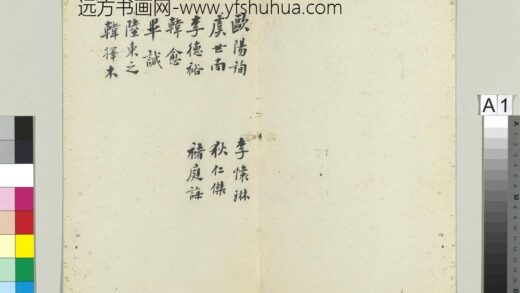 远方书画网-www.yfshuhua.com
歐陽詢
虞世南
李德裕
韓愈
畢諴
陸東之
韓擇木
李懐琳
狄仁傑
褚庭誨
A 1